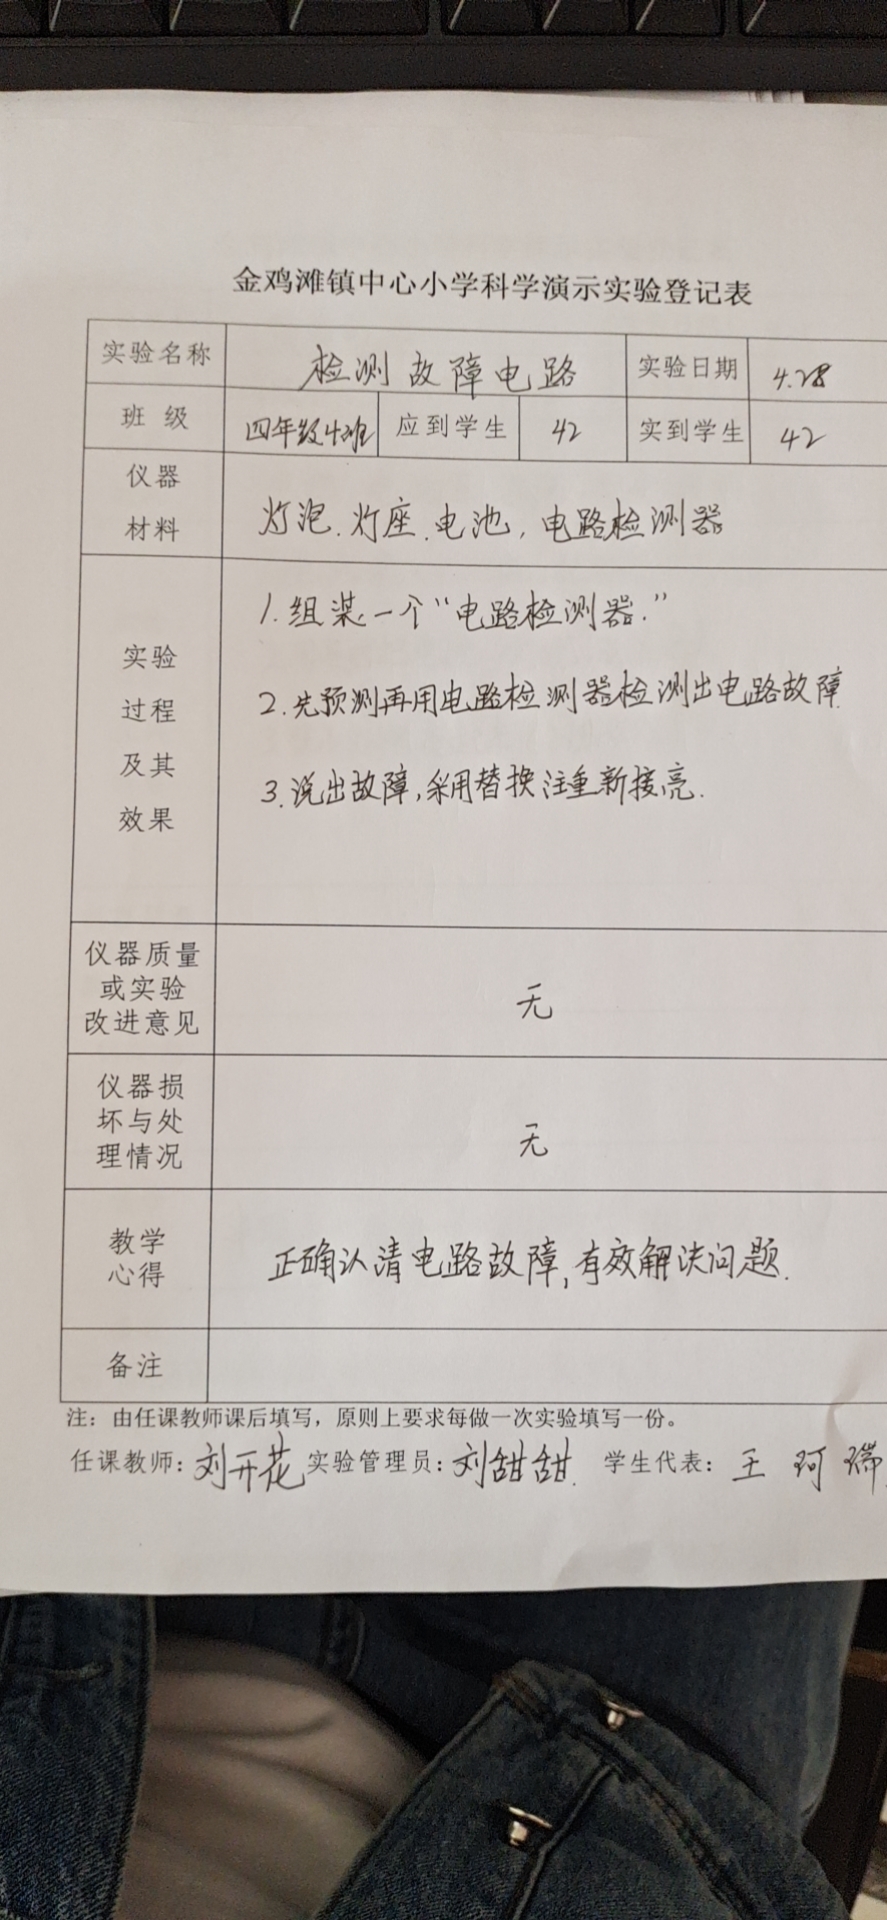 金鸡滩镇中心小学科学演示实验登记表
实验名称 检测故障电路 实验日期 4.28
班级 四年级4班 应到学生 42 实到学生 42
仪器
材料
灯泡.灯座.电池,电路检测器
实验
过程
及其
效果
1.组装一个“电路检测器.”
2.先预测再用电路检测器检测出电路故障.
3.说出故障,采用替换注重新接亮.
仪器质量
或实验
改进意见
无
仪器损
坏与处
理情况
无
教学
心得
正确认清电路故障,有效解决问题.
备注
注：由任课教师课后填写，原则上要求每做一次实验填写一份。
任课教师：刘开花 实验管理员：刘甜甜. 学生代表：王珂瑞